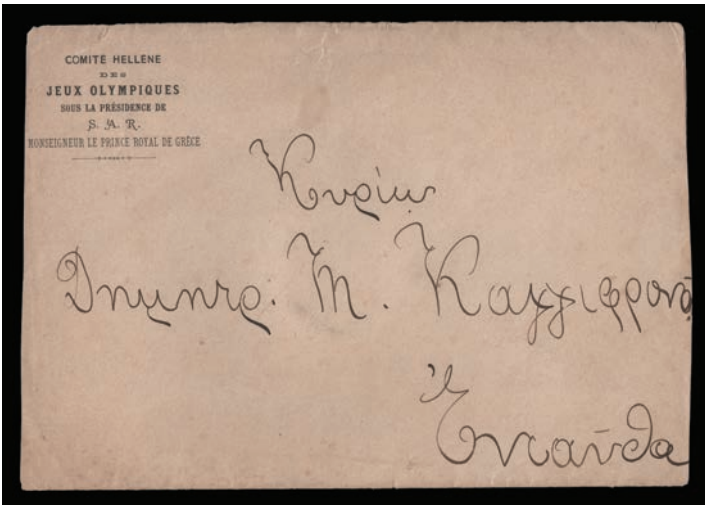 COMITÉ HELLÈNE
DES
JEUX OLYMPIQUES
SOUS LA PRÉSIDENCE DE
S. A. R.
MONSEIGNEUR LE PRINCE ROYAL DE GRÈCE
Κυρίῳ
Δημητρ. Μ. Καλλιφρονᾷ
Ἐνταῦθα